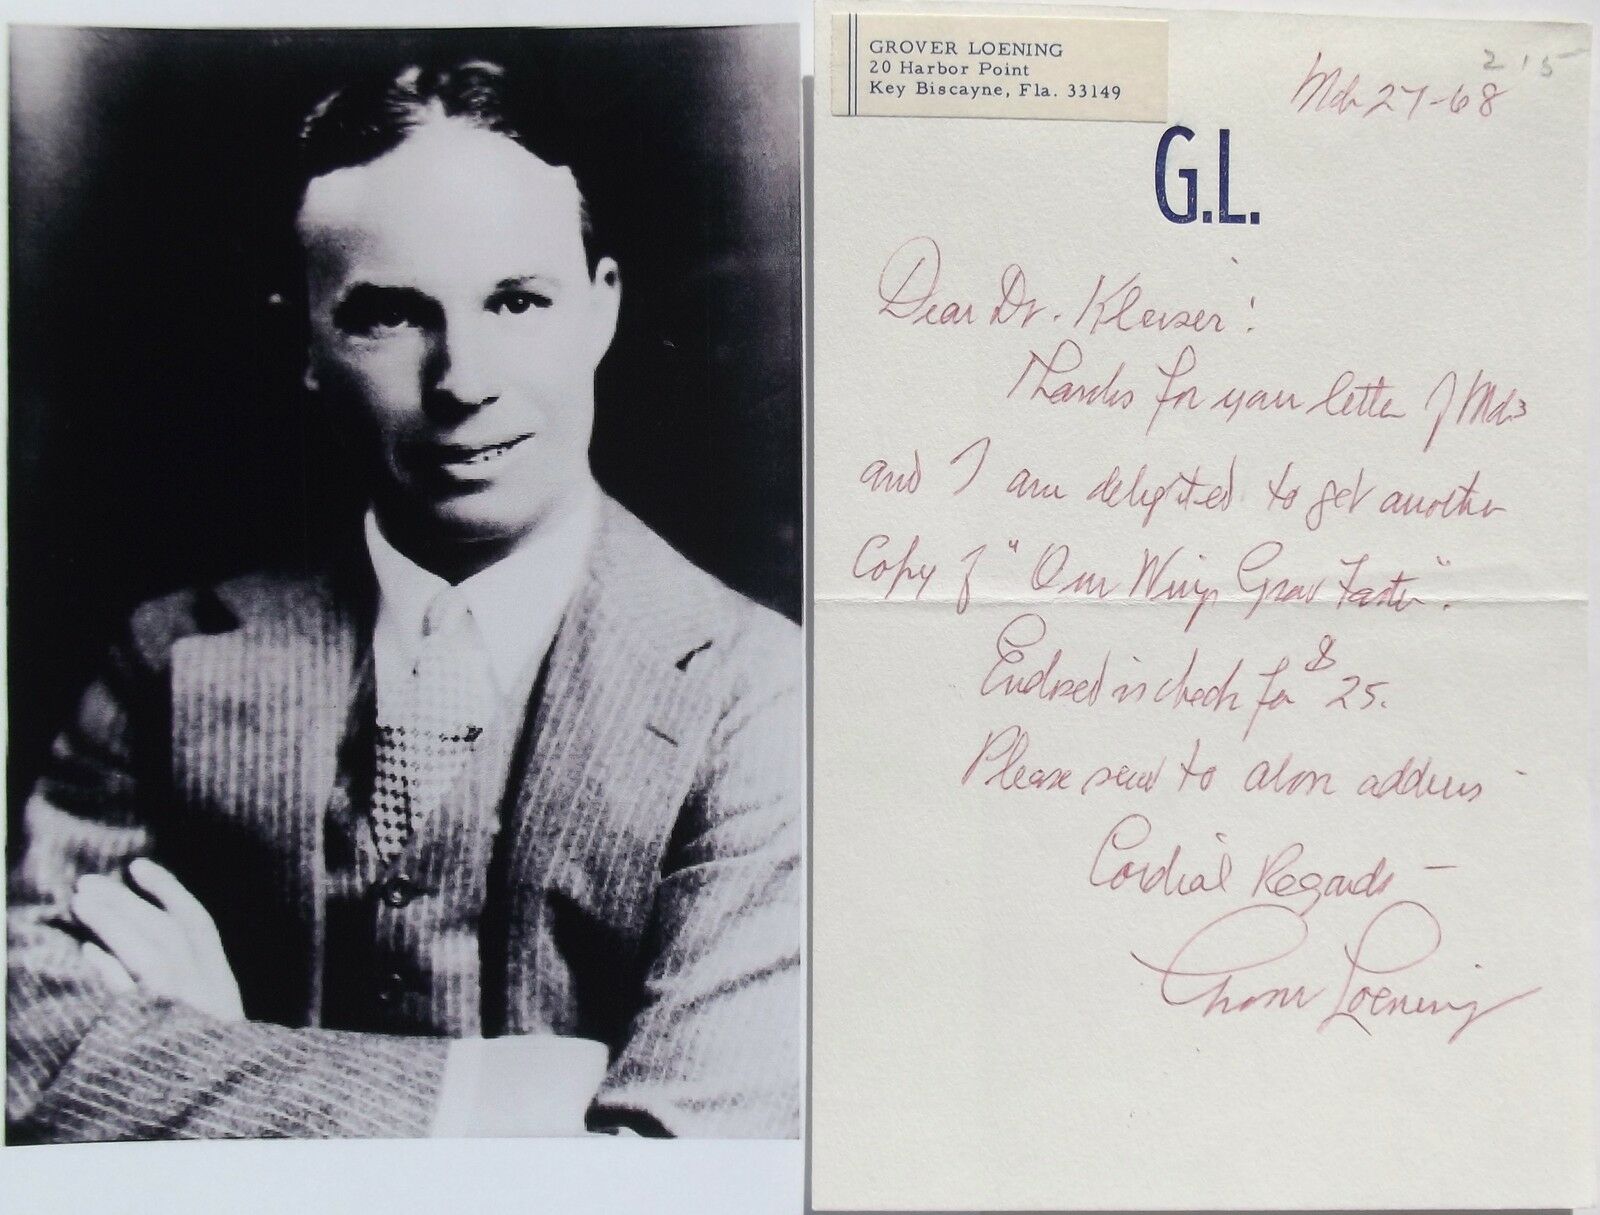 GROVER LOENING
20 Harbor Point
Key Biscayne, Fla. 33149
215
Mch 27-68
G.L.
Dear Dr. Kleiser:
Thanks for your letter of Mch
and I am delighted to get another
Copy of "Our Wings Grow Faster".
Enclosed is check for $25.
Please send to above address -
Cordial Regards -
Grover Loening